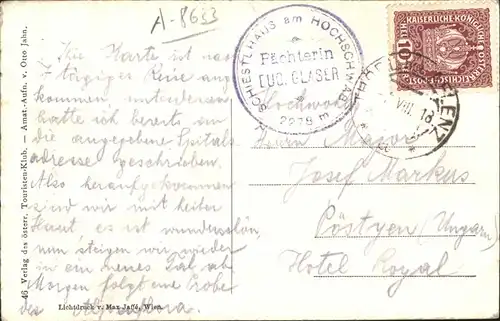 A-8633
SCHIESTLHAUS am HOCHSCHWAB
Pächterin
EUG. GLASER
2279 m
KAISERLICHE KÖNIGLICHE
10
VIII. 18
Die Karte ist nach
7 tägiger Reise ange-
kommen, unterdessen
hatte ich bereits an
die angegebene Spitals-
adresse geschrieben.
Also heraufgekommen
sind wir mit heiler
Haut, es ist wunderschön,
nun steigen wir wieder
in ein neues Tal ab
Morgen folgt eine Probe
des
Herrn Major
Josef Markus
Pöstyen (Ungarn)
Hotel Royal
46 Verlag des österr. Touristen-Klub. — Amat.-Aufn. v. Otto Jahn.
Lichtdruck v. Max Jaffé, Wien.